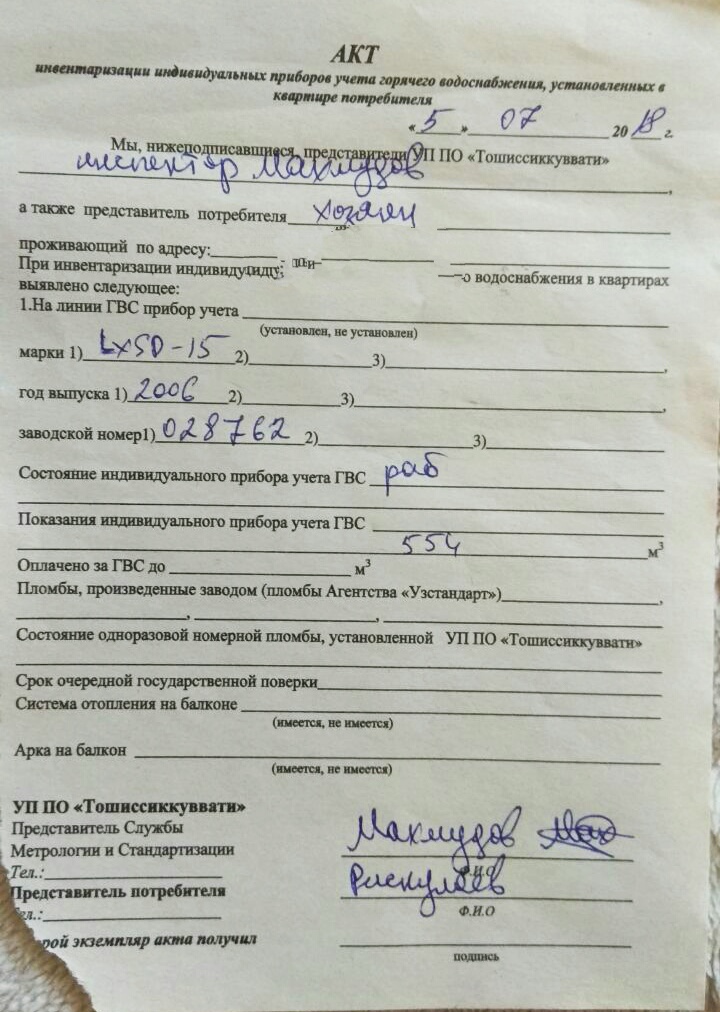 АКТ
инвентаризации индивидуальных приборов учета горячего водоснабжения, установленных в
квартире потребителя
«5» 07 2018 г.
Мы, нижеподписавшиеся, представители УП ПО «Тошиссиккуввати»
инспектор Махмудов,
а также представитель потребителя хозяин
проживающий по адресу:
При инвентаризации водоснабжения в квартирах
выявлено следующее:
1.На линии ГВС прибор учета
(установлен, не установлен)
марки 1) LXSD-15 2) 3),
год выпуска 1) 2006 2) 3),
заводской номер1) 028762 2) 3)
Состояние индивидуального прибора учета ГВС раб
Показания индивидуального прибора учета ГВС
554 м³
Оплачено за ГВС до м³
Пломбы, произведенные заводом (пломбы Агентства «Узстандарт»),
, ,
Состояние одноразовой номерной пломбы, установленной УП ПО «Тошиссиккуввати»
Срок очередной государственной поверки
Система отопления на балконе
(имеется, не имеется)
Арка на балкон
(имеется, не имеется)
УП ПО «Тошиссиккуввати»
Представитель Службы
Метрологии и Стандартизации Махмудов
Тел.: Ф.И.О
Представитель потребителя Рискулаев
Ф.И.О
экземпляр акта получил
подпись